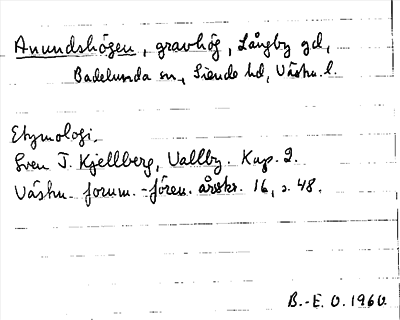 Anundshögen, gravhög, Långby gd,
Badelunda sn, Siende hd, Västm. l.
Etymologi.
Sven T. Kjellberg, Vallby. Kap. 2.
Västm. fornm.-fören. årsskr. 16, s. 48.
B.-E. O. 1960.